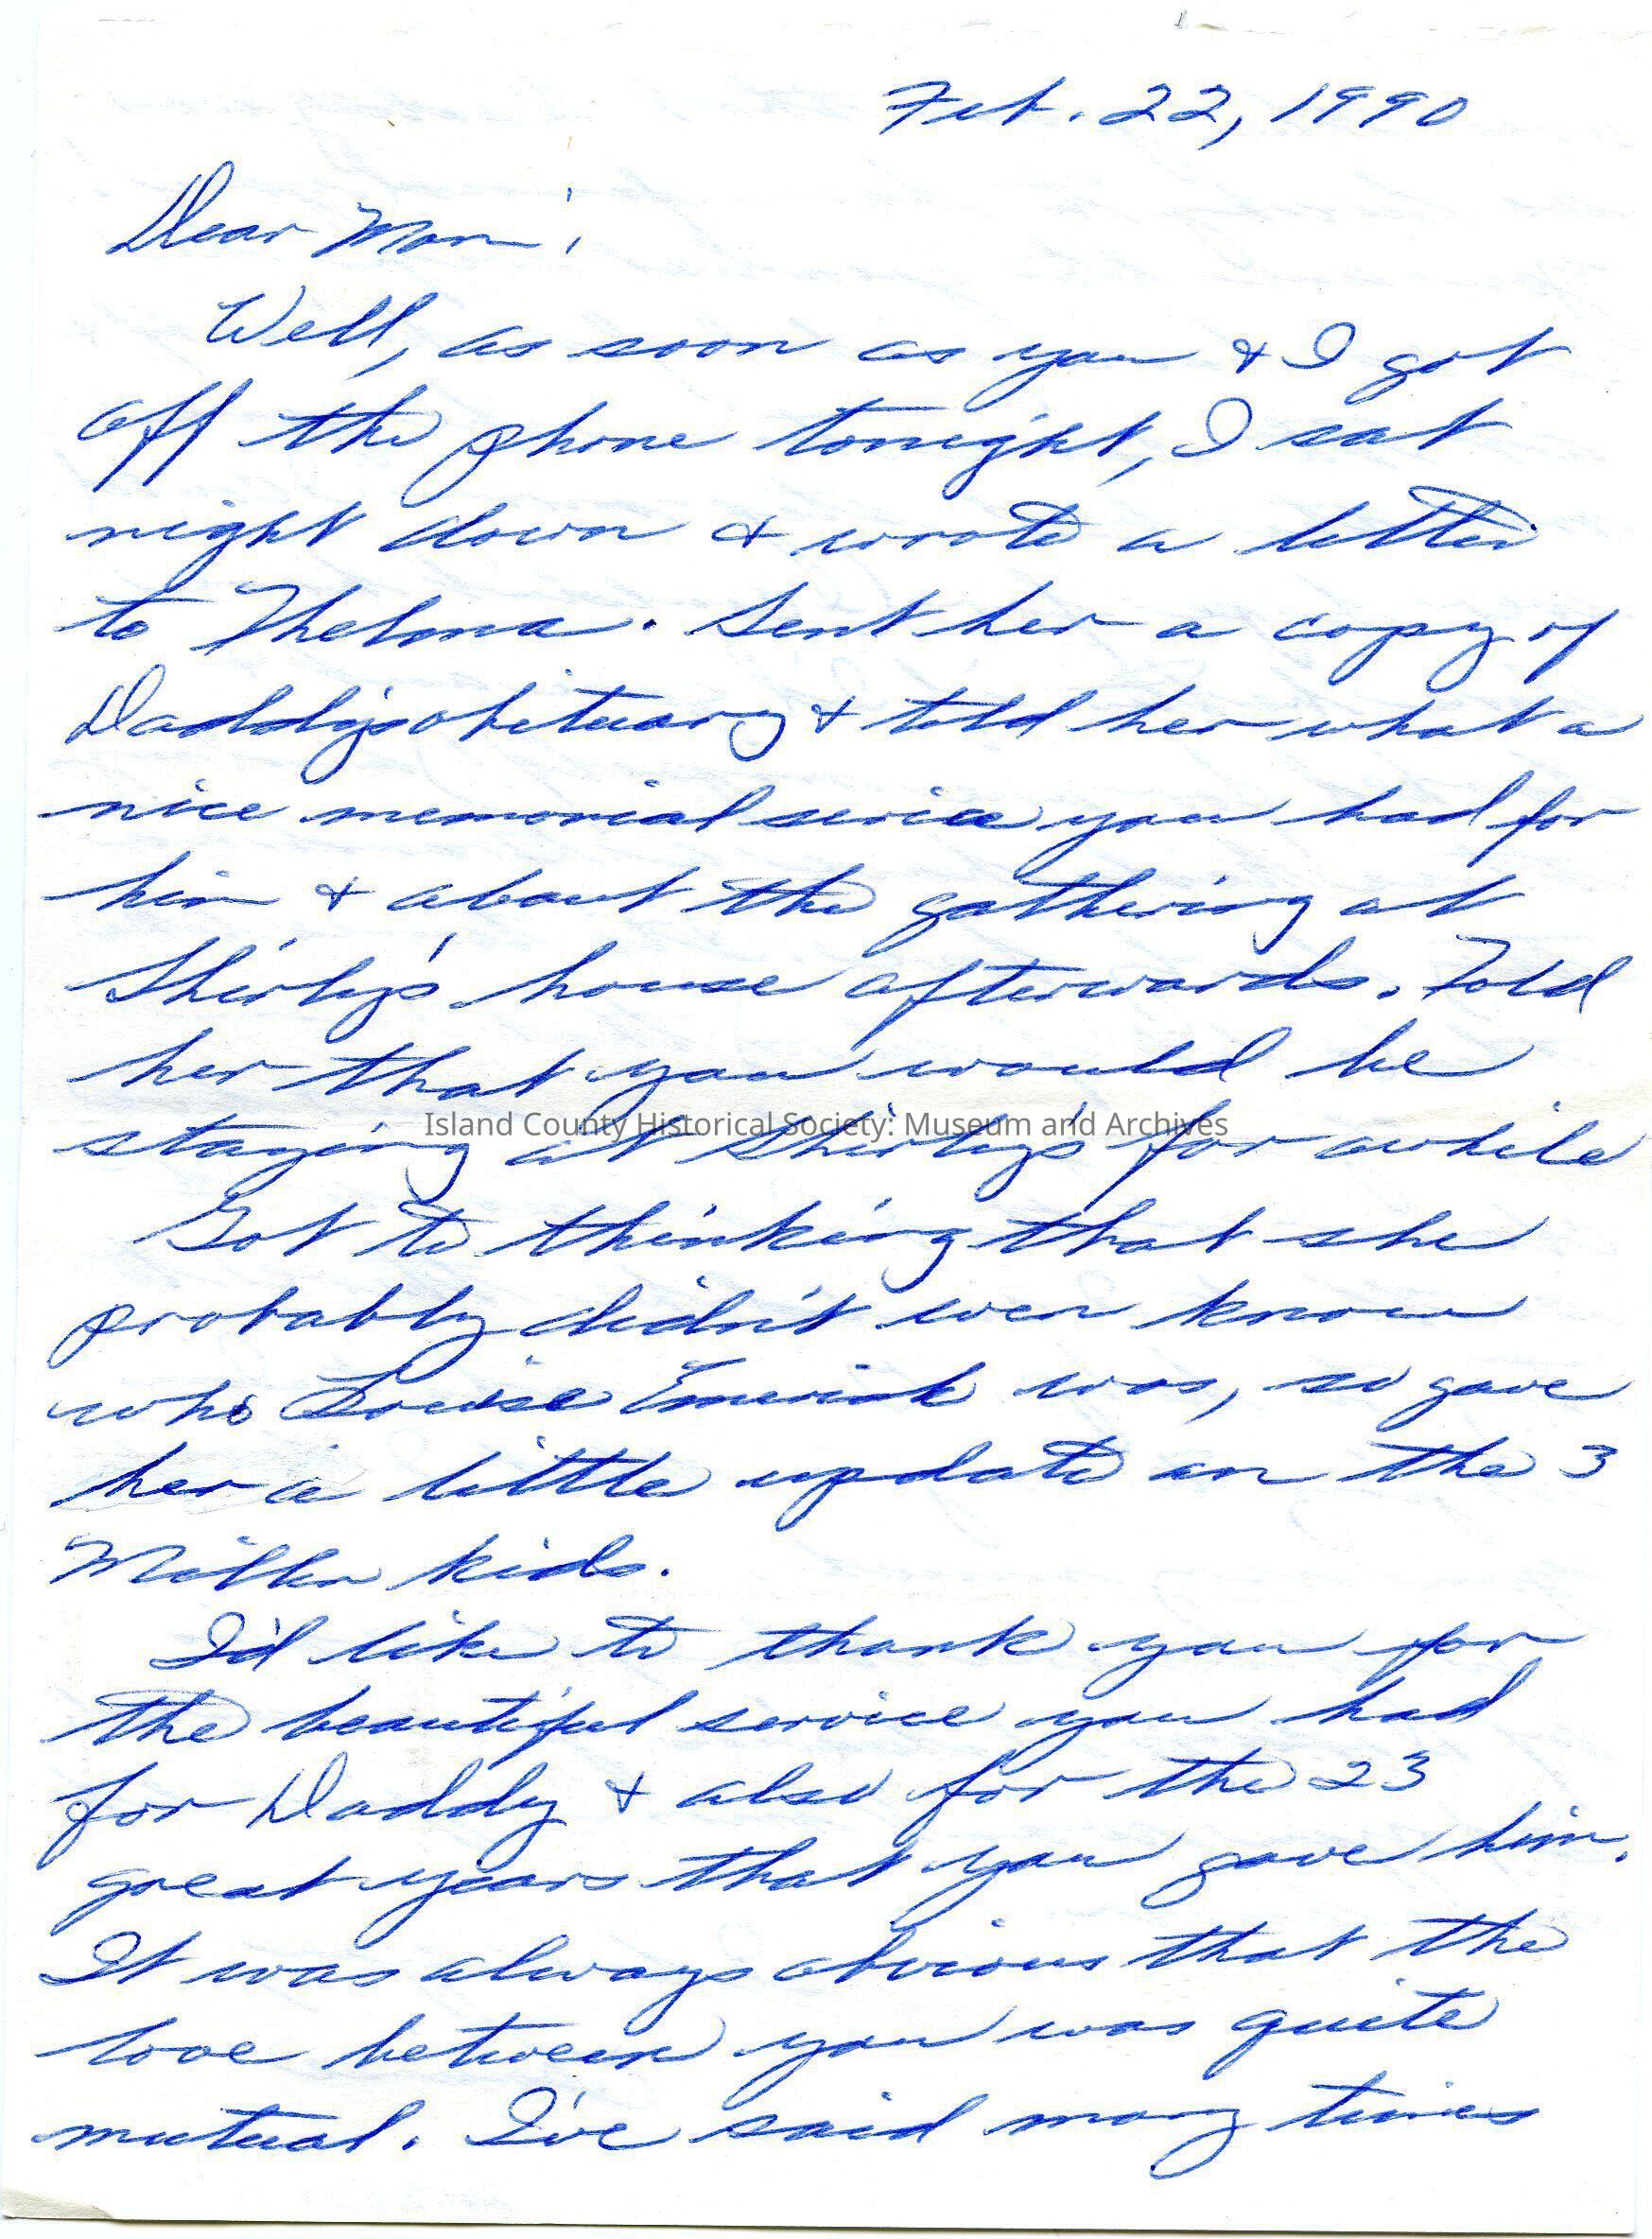 Feb. 22, 1990
Dear Mom;
Well, as soon as you & I got
off the phone tonight, I sat
right down & wrote a letter
to Thelma. Sent her a copy of
Daddy's obituary & told her what a
nice memorial service you had for
him & about the gathering at
Shirley's house afterwards. Told
her that you would be
Island County Historical Society: Museum and Archives
staying at Shirley's for awhile
Got to thinking that she
probably didn't even know
who Louise Emerick was, so gave
her a little update on the 3
Miller kids.
I'd like to thank you for
the beautiful service you had
for Daddy & also for the 23
great years that you gave him.
It was always obvious that the
love between you was quite
mutual. I've said many times